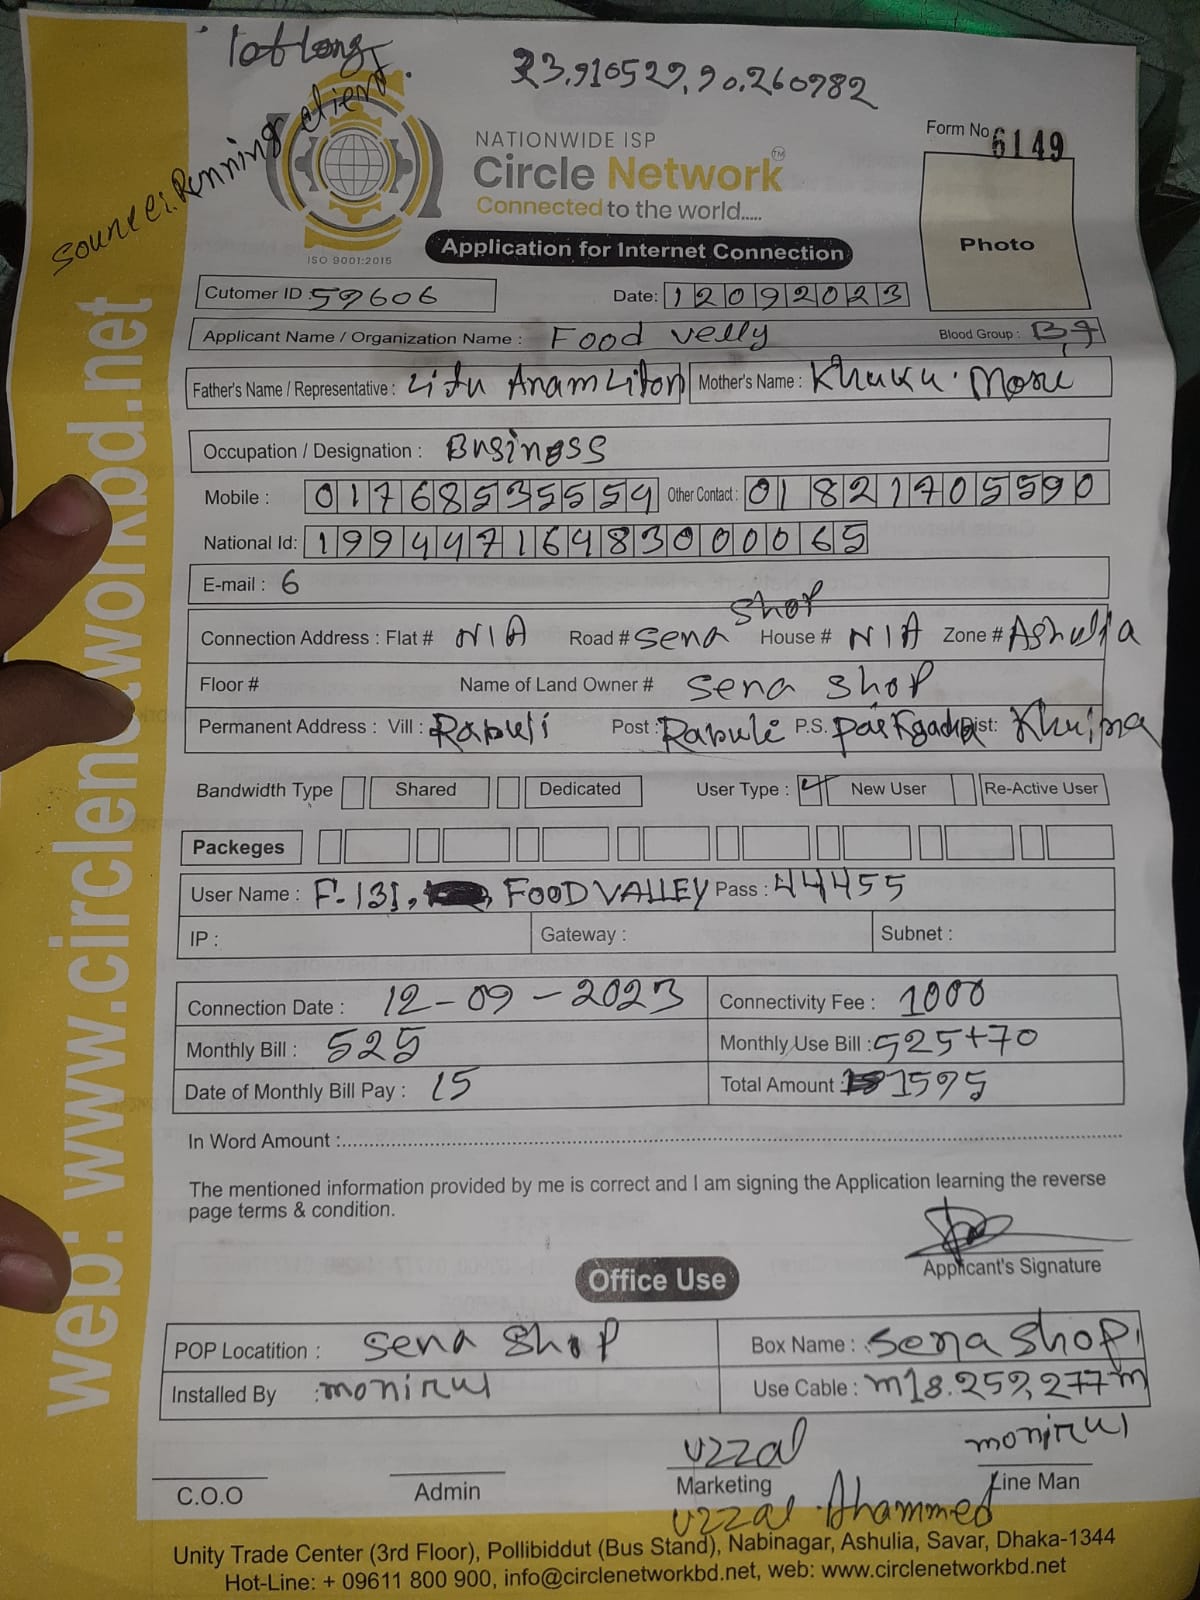 Lat Long
23.910529, 90.260982
Source: Running client
NATIONWIDE ISP
Circle Network TM
Connected to the world.....
ISO 9001:2015
Form No 6149
Photo
Application for Internet Connection
Cutomer ID : 59606 Date: 12092023
Applicant Name / Organization Name : Food velly Blood Group : B+
Father's Name / Representative : Litu Anam Liton Mother's Name : Khuku. Moni
Occupation / Designation : Business
Mobile : 01768535554 Other Contact : 01821705590
National Id: 19944471648300065
E-mail : 6
Connection Address : Flat # N/A Road # Sena Shop House # N/A Zone # Ashulia
Floor # Name of Land Owner # Sena Shop
Permanent Address : Vill : Rabuli Post : Rabuli P.S. Paikgacha Dist: Khulna
Bandwidth Type Shared Dedicated User Type : New User Re-Active User
Packeges
User Name : F-131, FOOD VALLEY Pass : 44455
IP : Gateway : Subnet :
Connection Date : 12-09-2023 Connectivity Fee : 1000
Monthly Bill : 525 Monthly Use Bill : 525+70
Date of Monthly Bill Pay : 15 Total Amount : 1595
In Word Amount :
The mentioned information provided by me is correct and I am signing the Application learning the reverse
page terms & condition.
Applicant's Signature
Office Use
POP Locatition : Sena Shop Box Name : Sena Shop
Installed By : monirul Use Cable : m18.259, 277m
Uzzal monirul
C.O.O Admin Marketing Line Man
Uzzal Ahammed
Unity Trade Center (3rd Floor), Pollibiddut (Bus Stand), Nabinagar, Ashulia, Savar, Dhaka-1344
Hot-Line: + 09611 800 900, info@circlenetworkbd.net, web: www.circlenetworkbd.net
web: www.circlenetworkbd.net